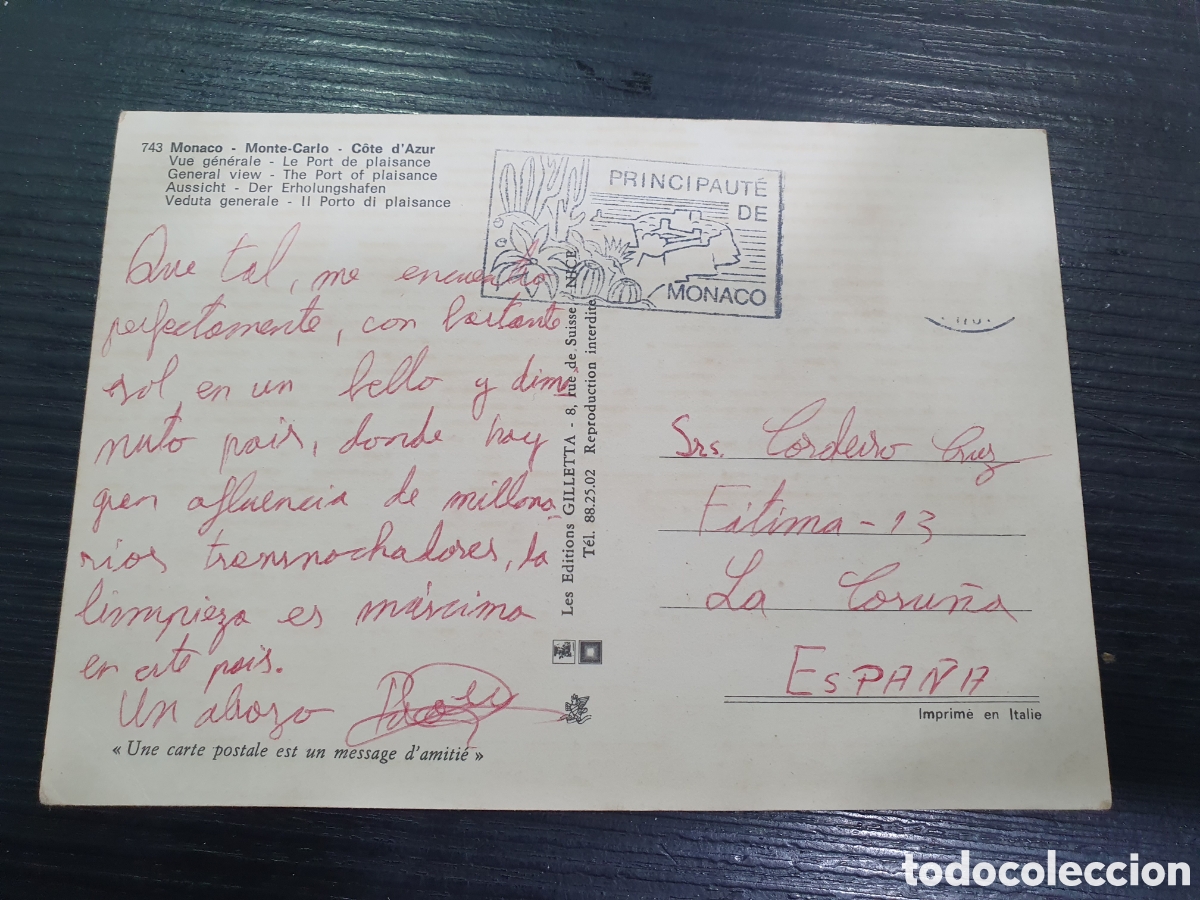 743 Monaco - Monte-Carlo - Côte d'Azur
Vue générale - Le Port de plaisance
General view - The Port of plaisance
Aussicht - Der Erholungshafen
Veduta generale - Il Porto di plaisance
PRINCIPAUTÉ
DE
MONACO
Que tal, me encuentro
perfectamente, con bastante
sol, en un bello y dimi
nuto pais, donde hay
gran afluencia de millona
rios transnochadores, la
limpieza es márcima
en este pais.
Un abrazo
« Une carte postale est un message d'amitié »
Les Editions GILLETTA - 8, rue de Suisse - NICE
Tél. 88.25.02 Reproduction interdite
Srs. Cordeiro Cruz
Fátima - 13
La Coruña
ESPAÑA
Imprimé en Italie
todocoleccion